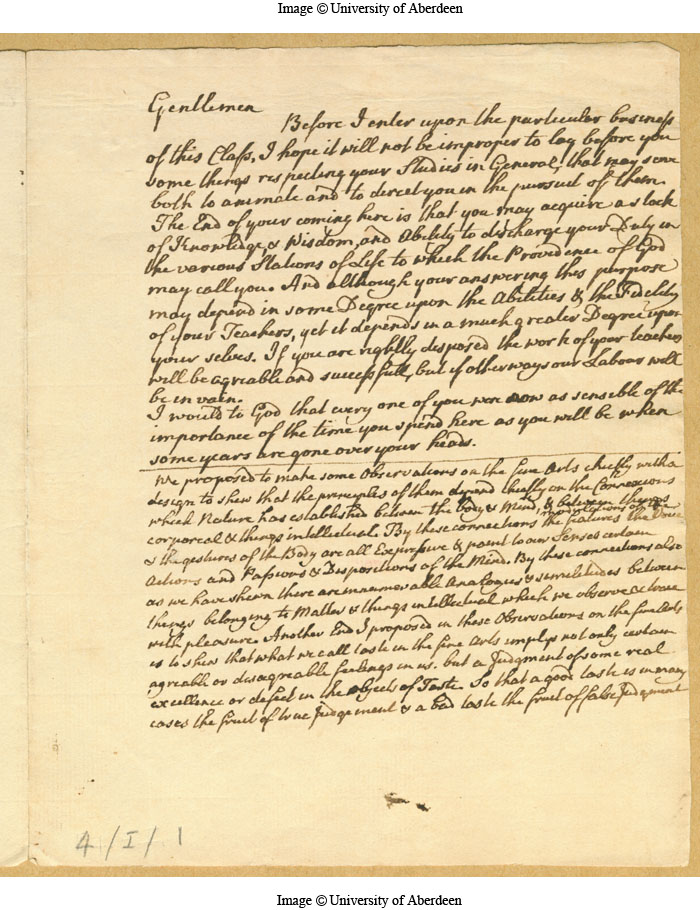 Image © University of Aberdeen
Gentlemen
Before I enter upon the particular business
of this Class, I hope it will not be improper to lay before you
some things respecting your Studies in General, that may serve
both to animate and to direct you in the pursuit of them.
The End of your coming here is that you may acquire a stock
of Knowledge & Wisdom, and Ability to discharge your Duty in
the various Stations of Life to which the Providence of God
may call you. And although your answering this purpose
may depend in some Degree upon the Abilities & the Fidelity
of your Teachers, yet it depends in a much greater Degree upon
your selves. If you are rightly disposed the work of your teachers
will be agreable and successfull, but if otherways our Labour will
be in vain.
I would to God that every one of you were now as sensible of the
importance of the time you spend here as you will be when
some years are gone over your heads.
We proposed to make some Observations on the fine Arts chiefly with a
design to shew that the principles of them depend chiefly on the Connexions
which Nature has established between the body & Mind, & between things
corporeal & things intellectual. By these connections the features the
modulations of the Voice
& the gestures of the Body are all Expressive & paint to our Senses certain
Actions and Passions & Dispositions of the Mind. By these connections also
as we have shewn there are innumerable Analogies & similitudes between
things belonging to Matter & things intellectual which we observe & trace
with pleasure. Another End I proposed in these Observations on the fine Arts
is to shew that what we call taste in the fine Arts implys not only certain
agreable or disagreable feelings in us. but a Judgment of some real
excellence or defect in the objects of Taste. So that a good taste is in many
cases the fruit of true Judgement & a bad taste the fruit of false Judgment
4/I/1
Image © University of Aberdeen